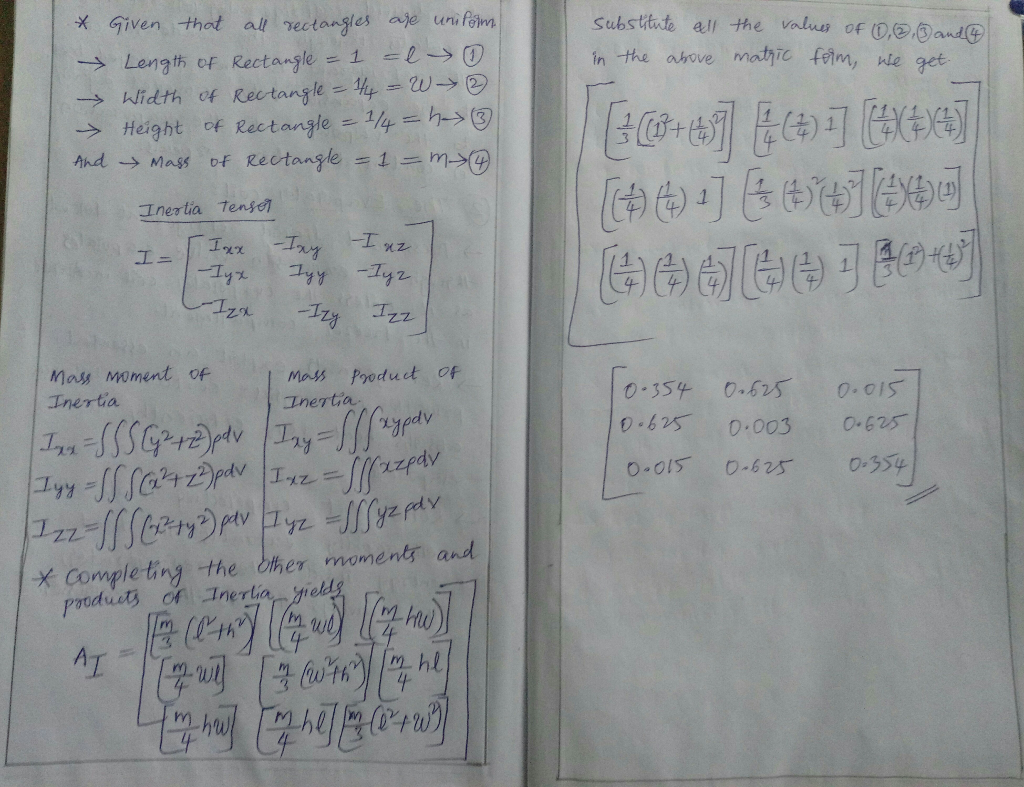 * Given that all rectangles are uniform
→ Length of Rectangle = 1 = l → ①
→ Width of Rectangle = 1/4 = W → ②
→ Height of Rectangle = 1/4 = h → ③
And → Mass of Rectangle = 1 = m → ④
Inertia Tensor
I = [ Ixx -Ixy -Ixz
-Iyx Iyy -Iyz
-Izx -Izy Izz ]
Mass Moment of Inertia
Ixx = ∫∫∫(y²+z²)ρdv
Iyy = ∫∫∫(x²+z²)ρdv
Izz = ∫∫∫(x²+y²)ρdv
Mass Product of Inertia
Ixy = ∫∫∫xyρdv
Ixz = ∫∫∫xzρdv
Iyz = ∫∫∫yzρdv
* Completing the other moments and
products of Inertia yields
A_I = [ [m/3 (l²+h²)] [(m/4 wl)] [(m/4 hw)]
[m/4 wl] [m/3 (w²+h²)] [m/4 hl]
[m/4 hw] [m/4 hl] [m/3 (l²+w²)] ]
Substitute all the values of ①,②,③ and ④
in the above matric form, we get
[ [1/3 ((1)²+(1/4)²)] [1/4 (1/4) 1] [(1/4)(1/4)(1/4)]
[(1/4)(1/4) 1] [1/3 (1/4)²(1/4)²] [(1/4)(1/4)(1)]
[(1/4)(1/4)(1/4)] [(1/4)(1/4) 1] [1/3 (1²)+(1/4)²] ]
[ 0.354 0.625 0.015
0.625 0.003 0.625
0.015 0.625 0.354 ]